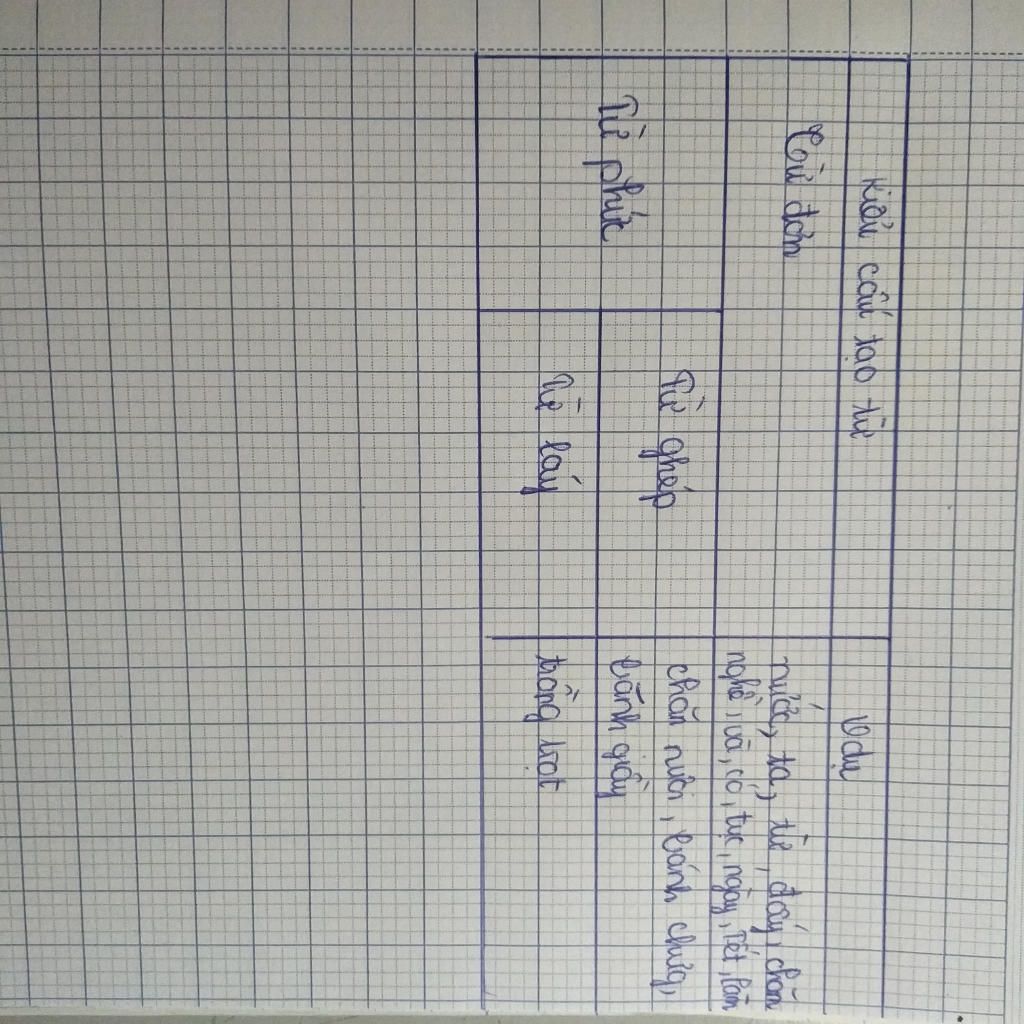 Kiểu cấu tạo từ
Vdụ
Từ đơn
nước, ta, từ, đấy, chăm
nghề, và, có, tục, ngày, Tết, làm
Từ phức
Từ ghép
chăn nuôi, bánh chưng,
bánh giầy
Từ láy
trồng trọt